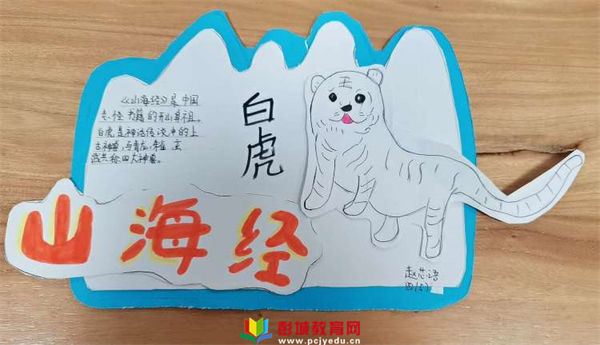 《山海经》是中国
志怪书籍的开山鼻祖。
白虎是神话传说中的上
古神兽,与青龙,朱雀,玄
武共称四大神兽。
白虎
王
山海经
赵芯语
四(5)
彭城教育网
www.pcjyedu.cn